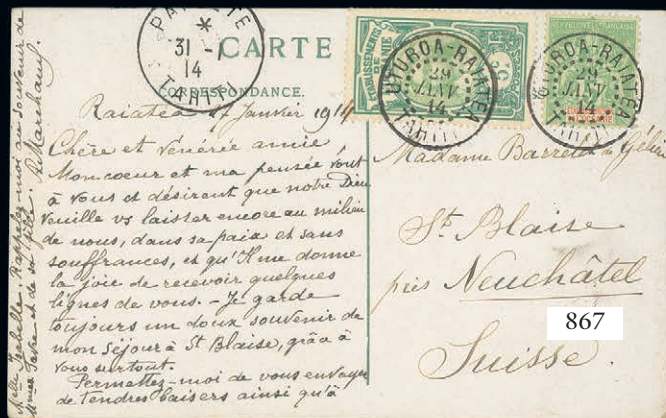 PAPEETE
31 - 1
14
TAHITI
CARTE
CORRESPONDANCE.
ETABLISSEMENTS
DE
OCEANIE
UTUROA-RAIATEA
29
JANV
14
TAHITI
UTUROA-RAIATEA
29
JANV
14
TAHITI
Raiatea 27 Janvier 1914
Chère et vénérée amie
Mon coeur et ma pensée vont
à vous et désirent que notre Dieu
veuille vs laisser encore au milieu
de nous, dans sa paix et sans
souffrances, et qu'Il me donne
la joie de recevoir quelques
lignes de vous. - Je garde
toujours un doux souvenir de
mon séjour à St Blaise, grâce à
vous surtout.
Permettez-moi de vous envoyer
de tendres baisers ainsi qu'à
Melle Isabelle. Rappelez-moi au souvenir de
Mme et de sa fille.
Madame
St Blaise
près Neuchâtel
Suisse.
867